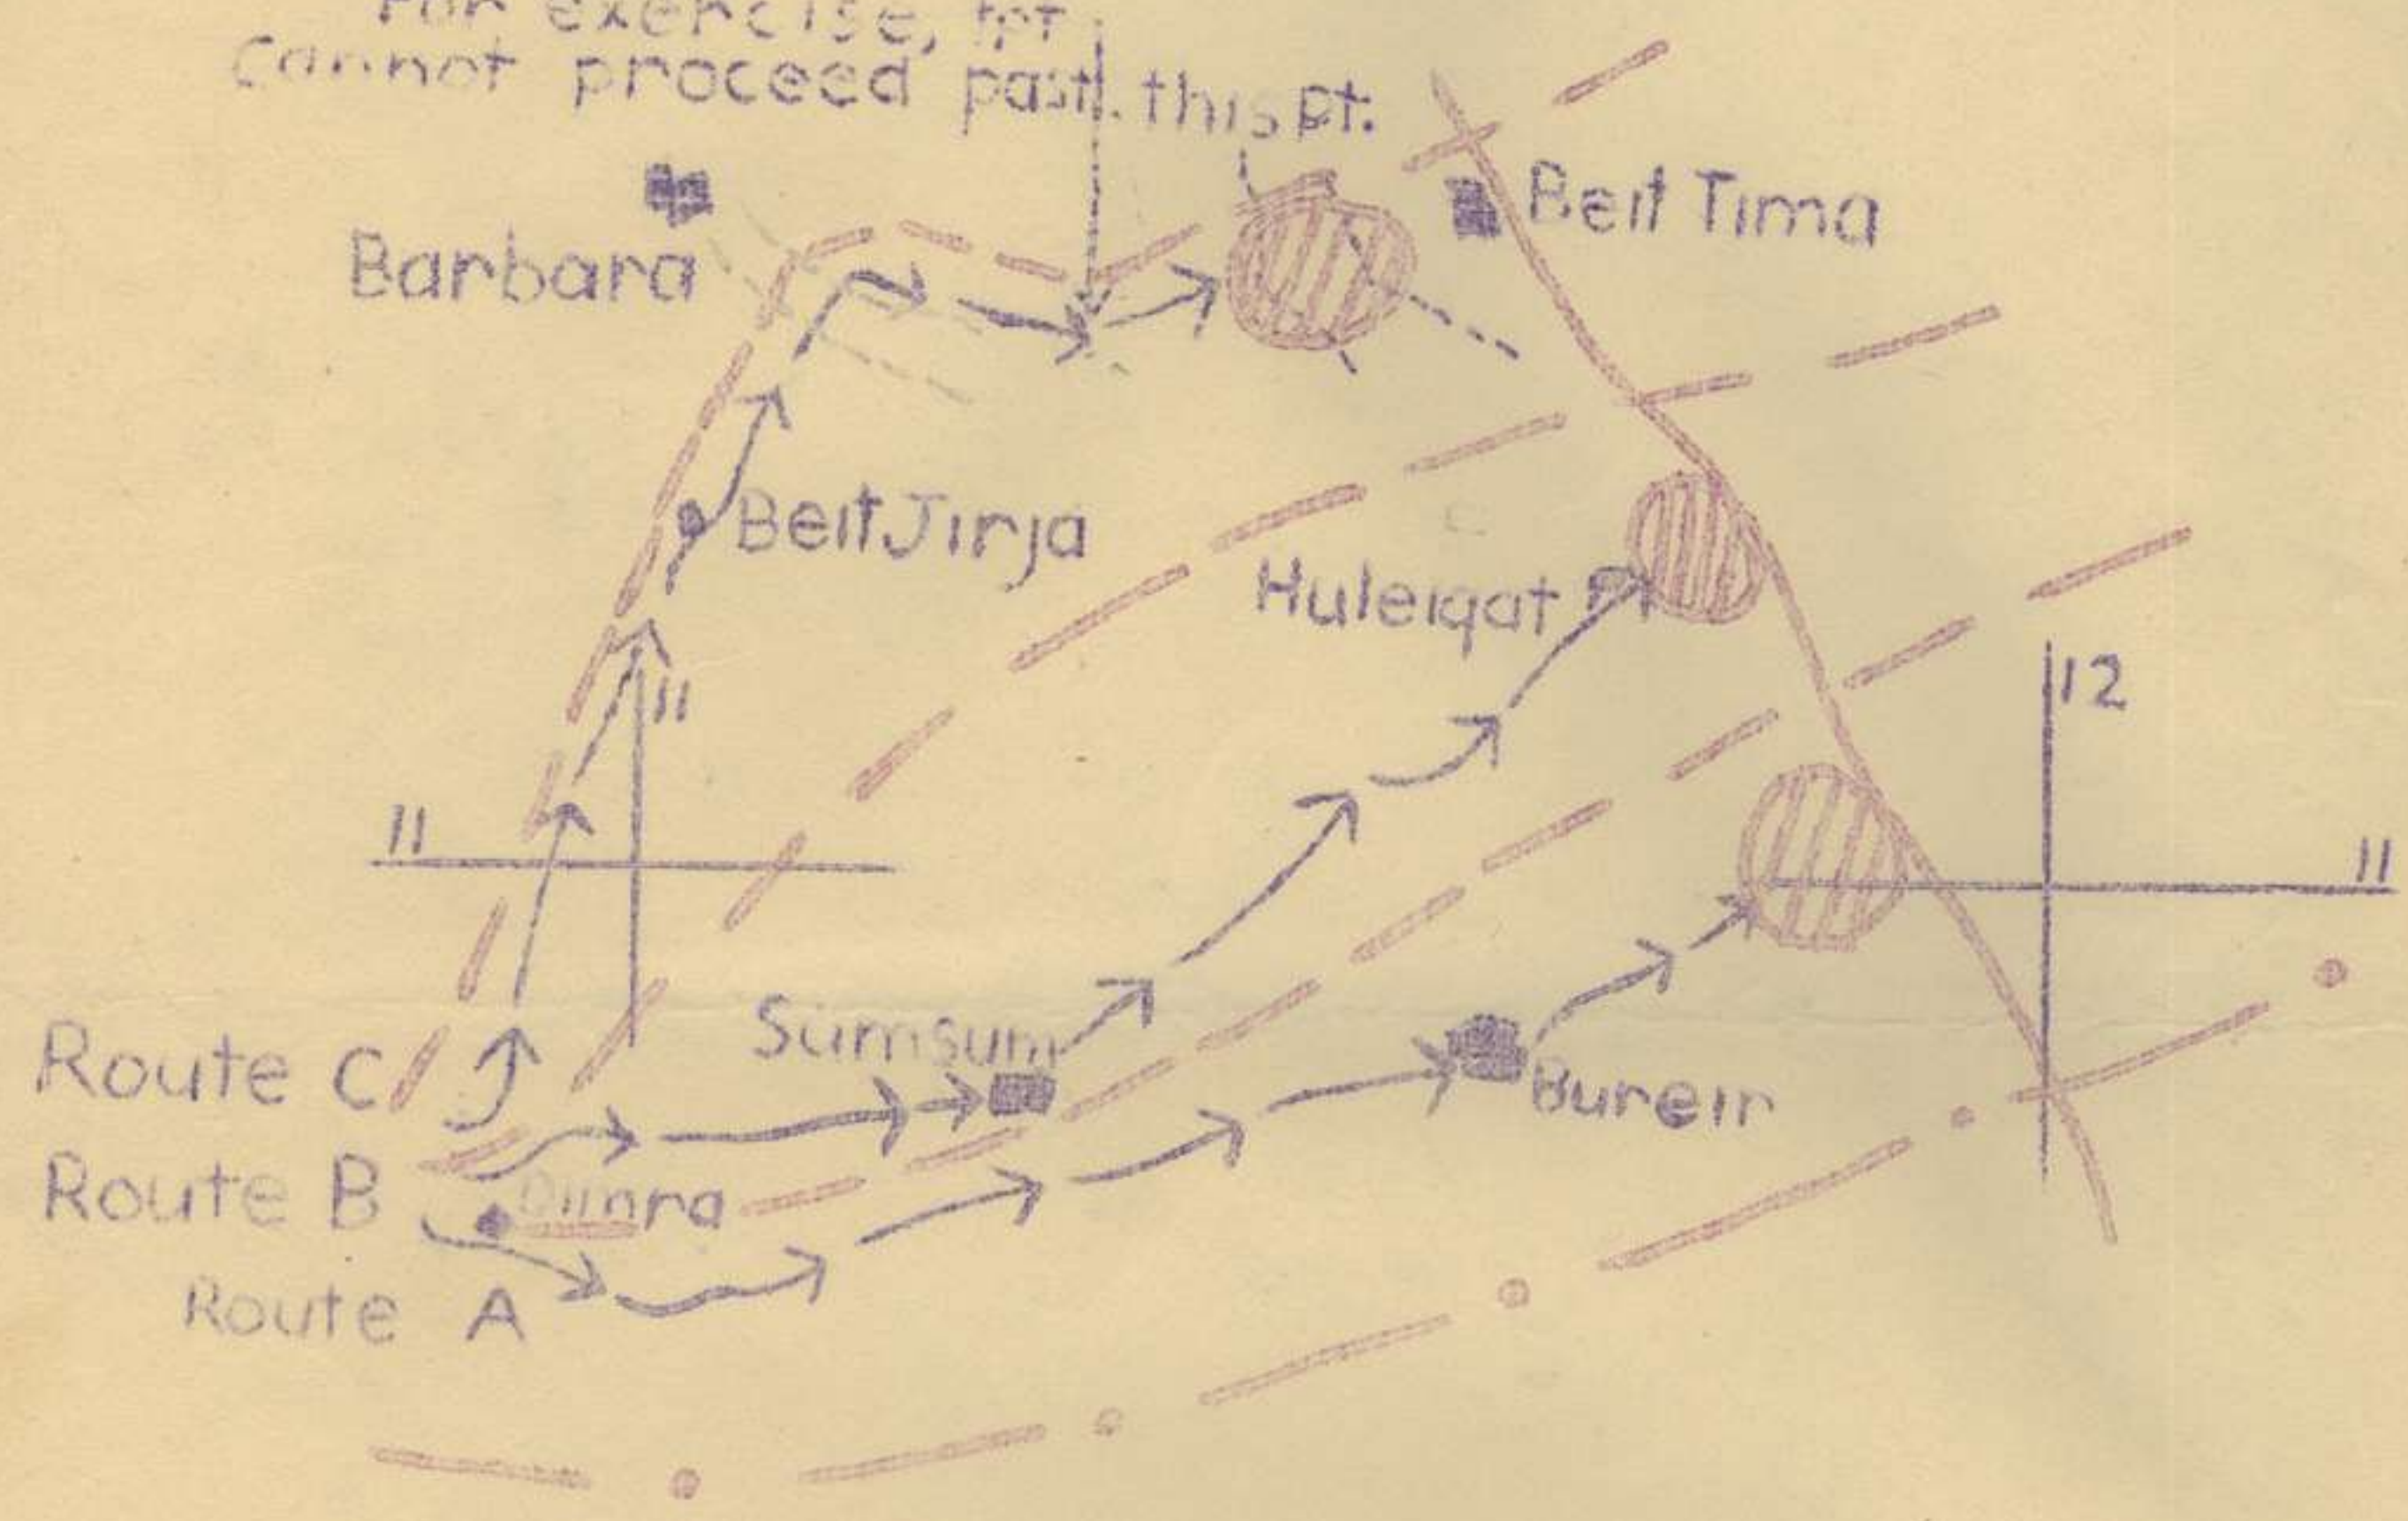 For exercise, tpt
Cannot proceed past this pt.
Barbara
Beit Tima
Beit Jirja
Huleiqat
11
12
11
11
Sumsum
Route C
Bureir
Route B
Route A